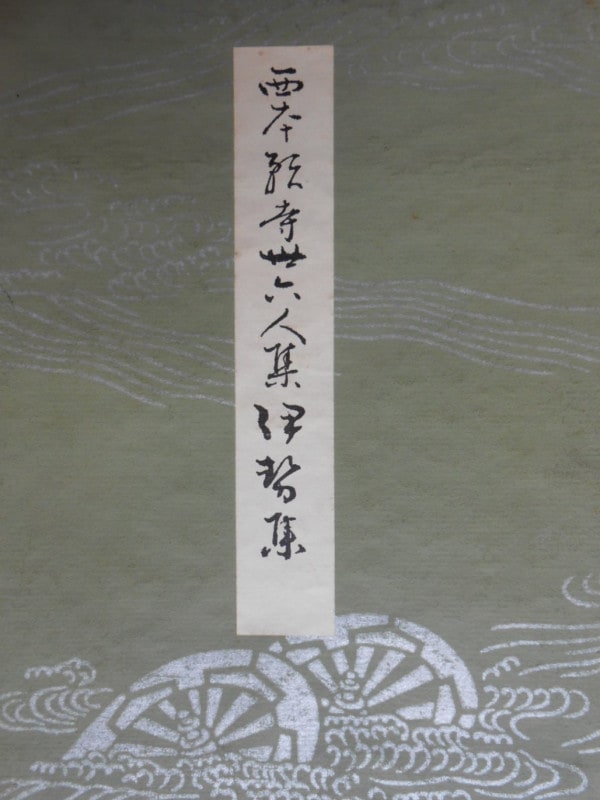 西本願寺卅六人集伊勢集